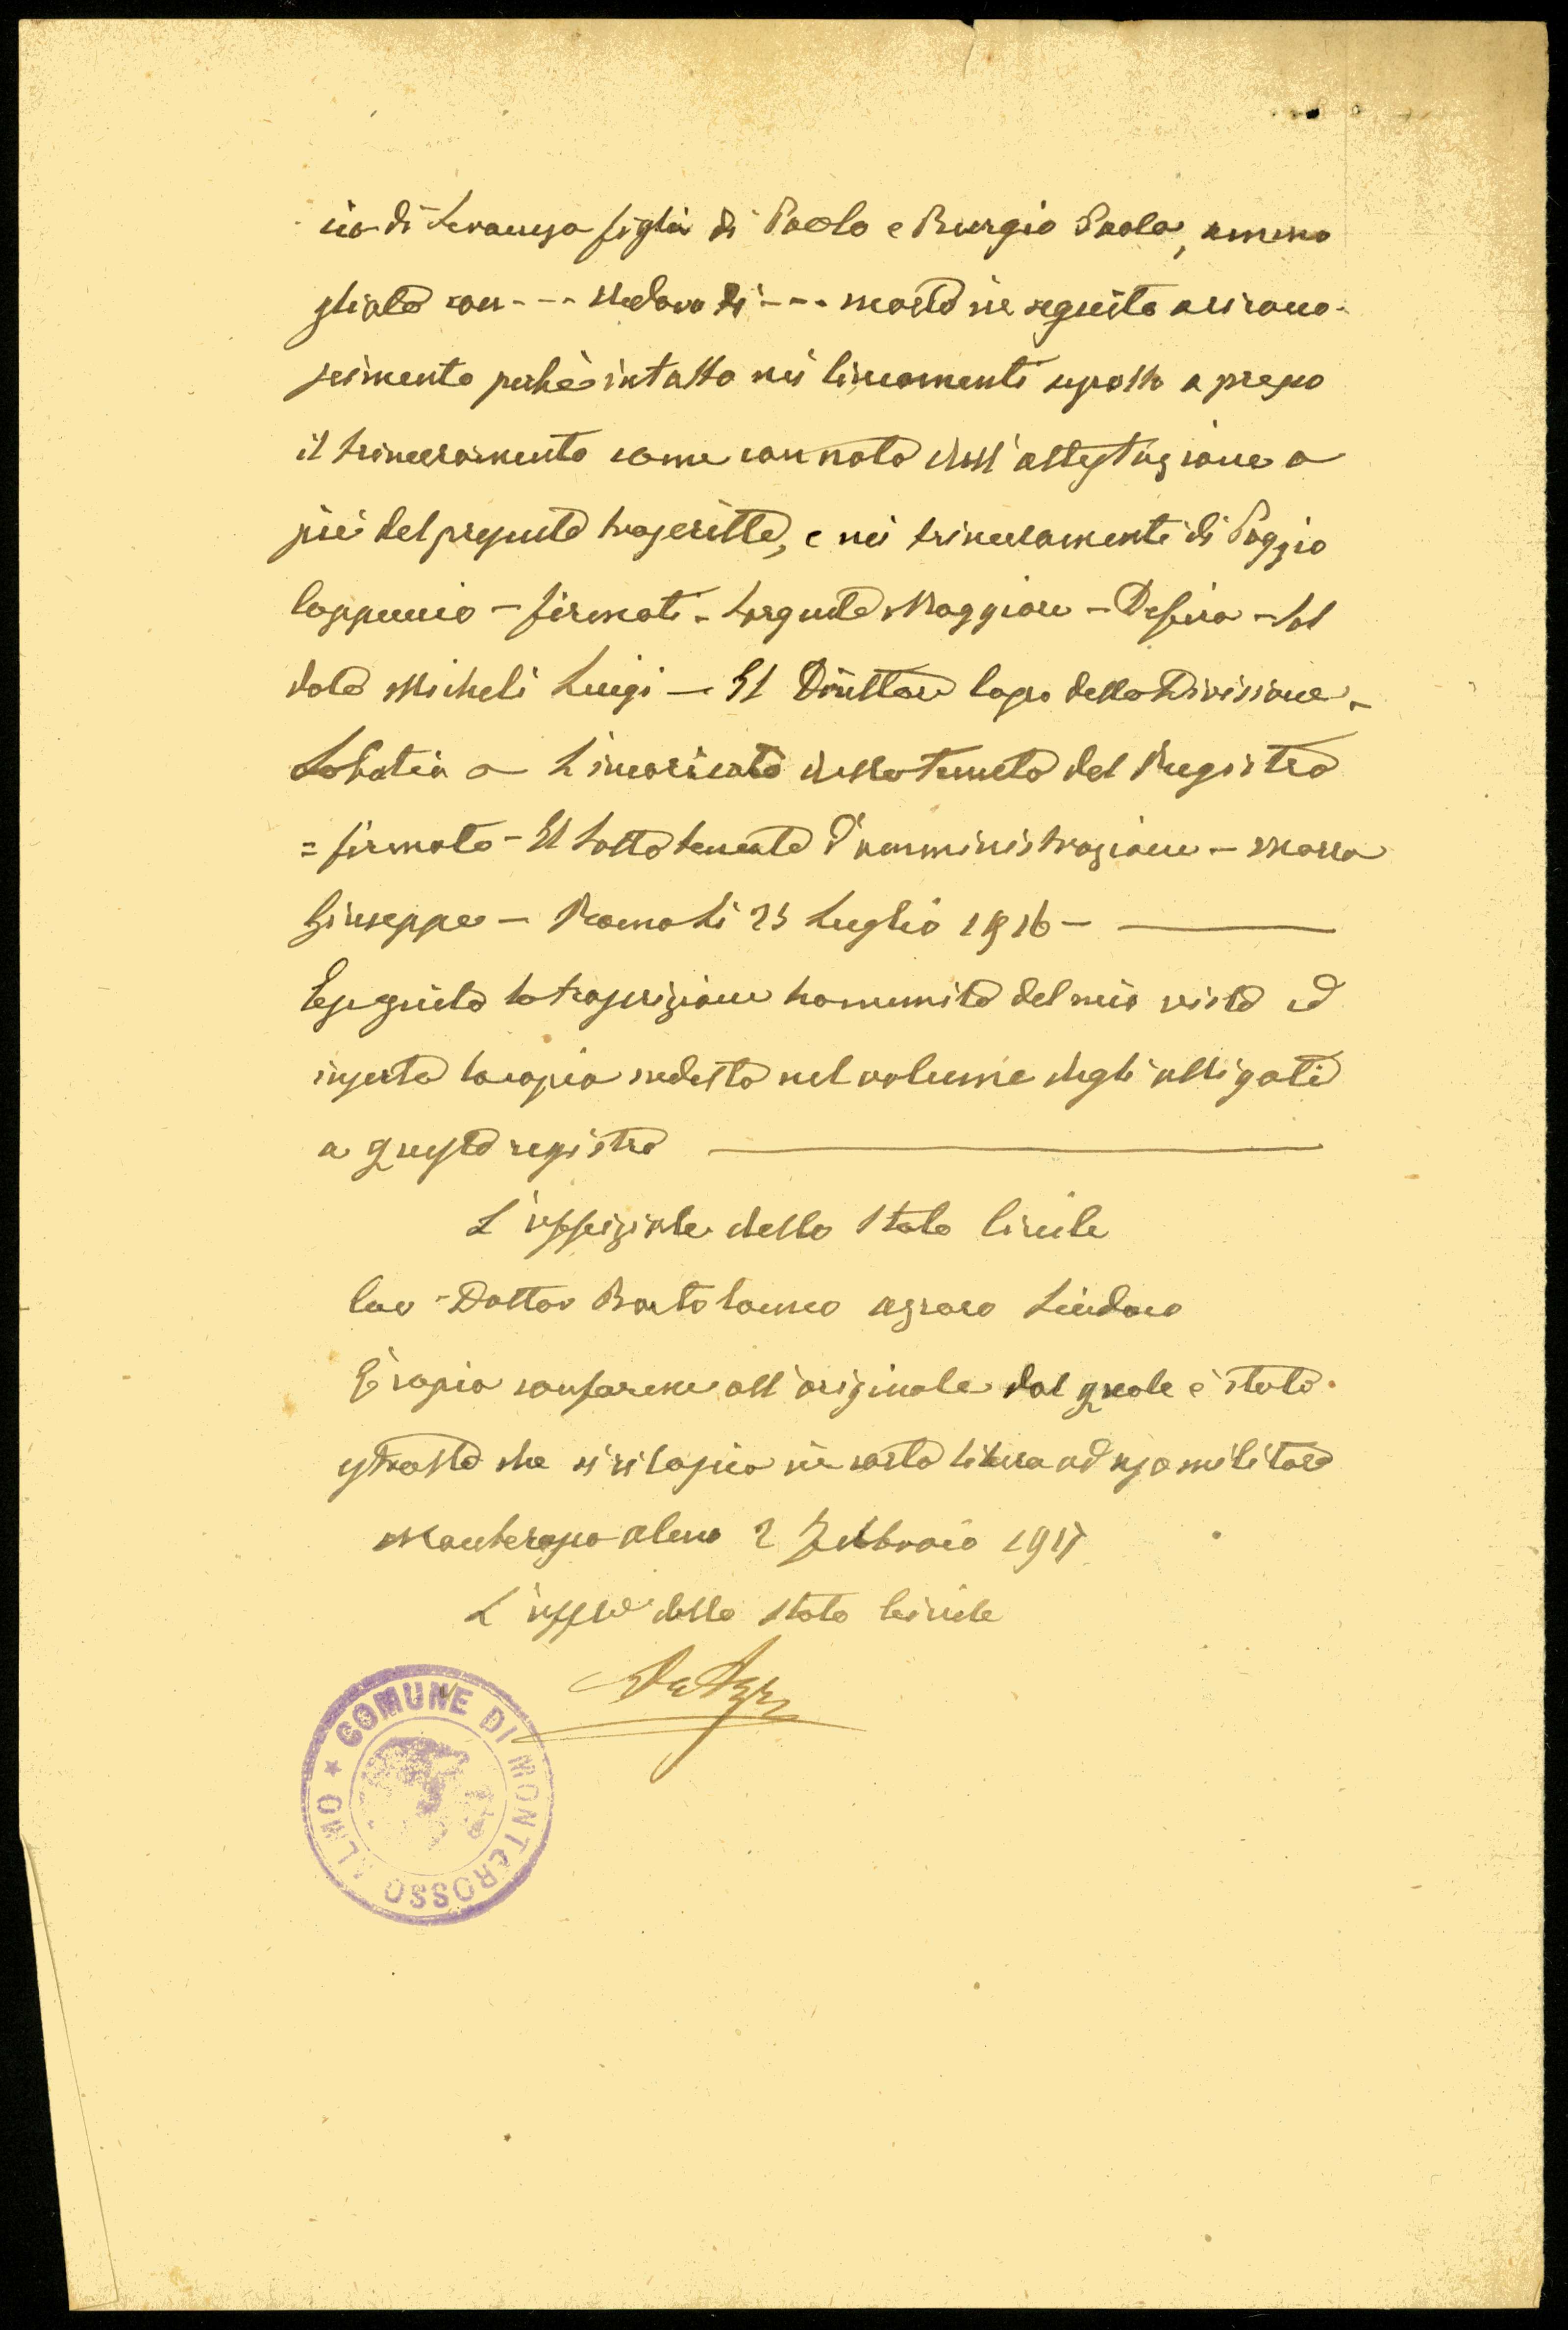 cia di Siracusa figlio di Paolo e Burgio Paola, ammo
gliato con --- vedovo di --- morto in seguito a ricono-
scimento perchè intatto nei lineamenti sepolto a presso
il trinceramento come con nota dell'attestazione a
piè del presente trascritto, e nei trinceramenti di Poggio
Cappuccio - firmati - Sergente Maggiore - - Sol
dato Micheli Luigi - Il Direttore Capo della Divisione -
L'incaricato della tenuta del Registro
= firmato - Il Sottotenente d'amministrazione - Massa
Giuseppe - Roma li 23 Luglio 1916 -
Eseguita la trascrizione ho munito del mio visto ed
inserta la copia suddetta nel volume degli alligati
a questo registro
L'uffiziale dello Stato Civile
Cav - Dottor Bartolomeo Sindaco
È copia conforme all'originale dal quale è stata
estratta che si rilascia in carta libera ad uso militare
Monterosso Almo 2 Febbraio 1917
L'uffle dello Stato Civile
COMUNE DI MONTEROSSO ALMO